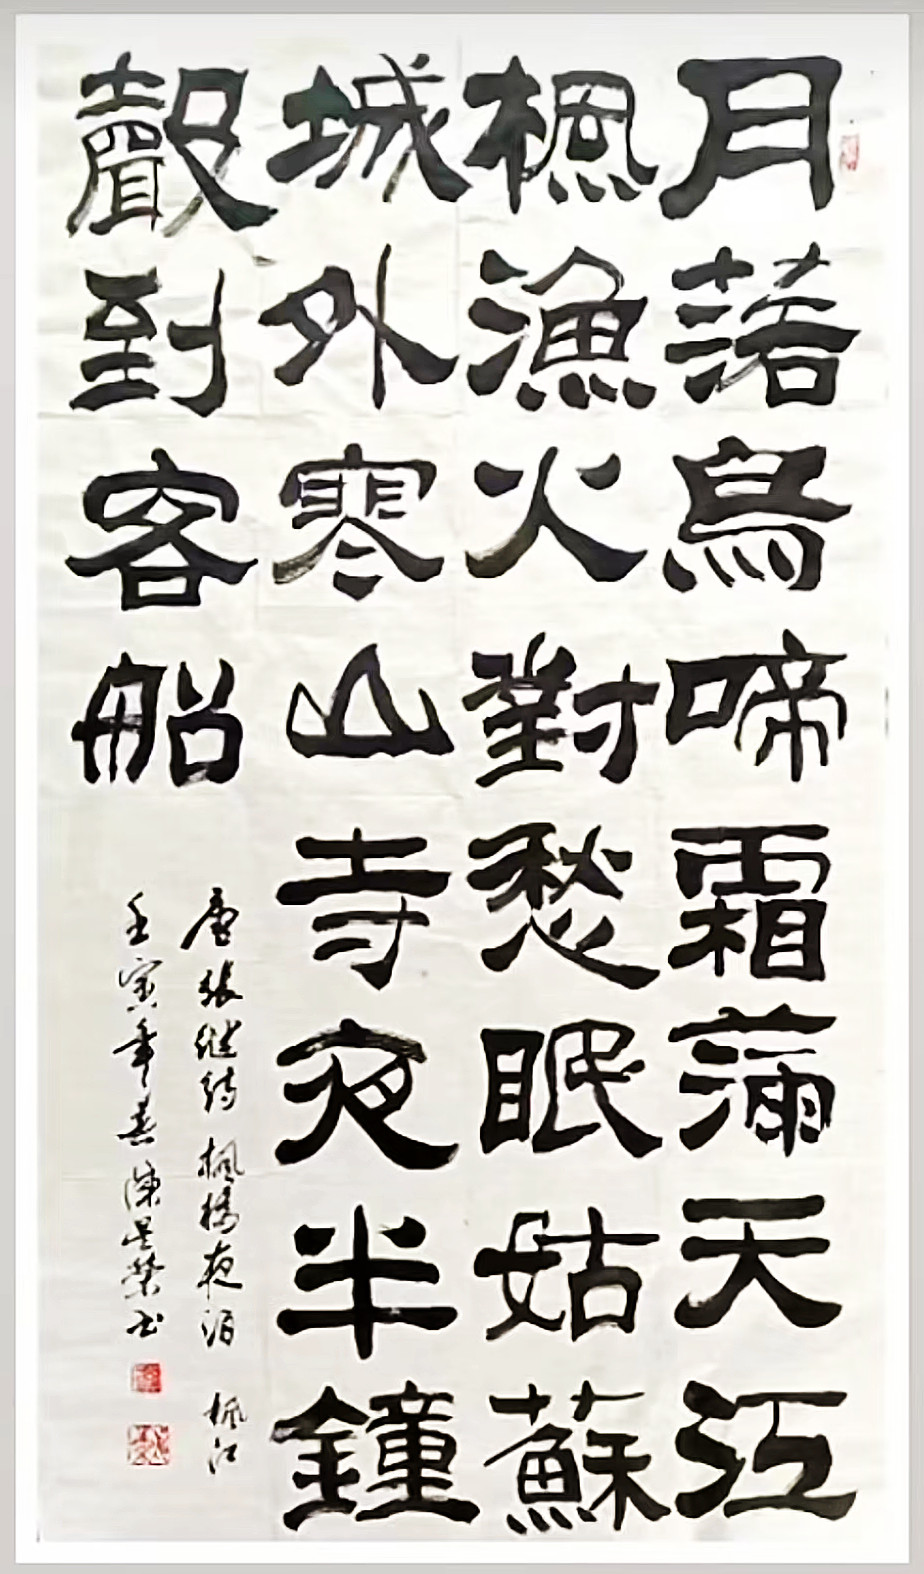 月落烏啼霜滿天江
楓漁火對愁眠姑蘇
城外寒山寺夜半鐘
聲到客船
唐張继诗枫橋夜泊 枫江
壬寅年春陳荣书